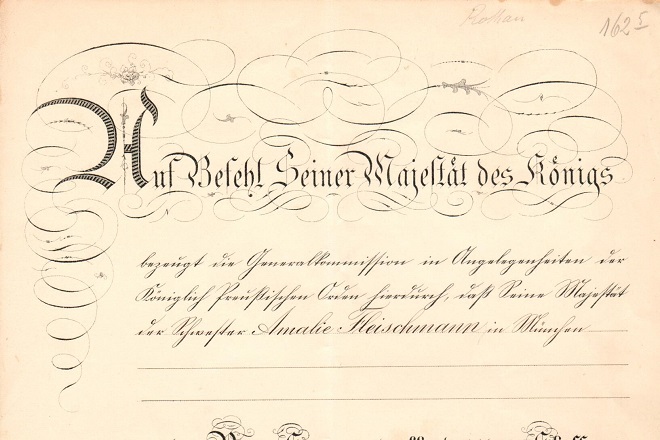 162 I
Auf Befehl Seiner Majestät des Königs
bezeugt die Generalkommission in Angelegenheiten der
Königlich Preußischen Orden hierdurch, daß Seine Majestät
der Schwester Amalie Fleischmann in München